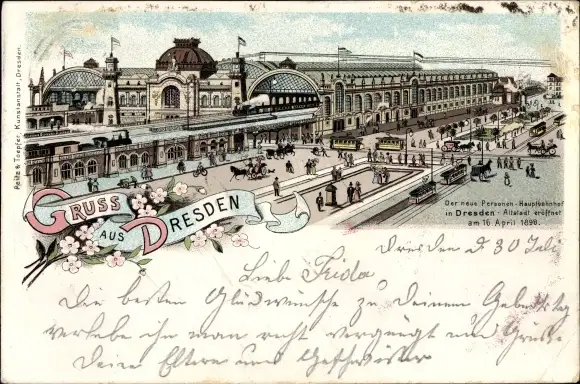 Peitz & Toepfer, Kunstanstalt, Dresden.
GRUSS
AUS
DRESDEN
Der neue Personen-Hauptbahnhof
in Dresden-Altstadt eröffnet
am 16. April 1898.
Dresden d 30 Juli
Liebe Frida
Die besten Glückwünsche zu Deinem Geburtstag
verlebe ihn man recht vergnügt und Grüße
Deine Eltern und Geschwister